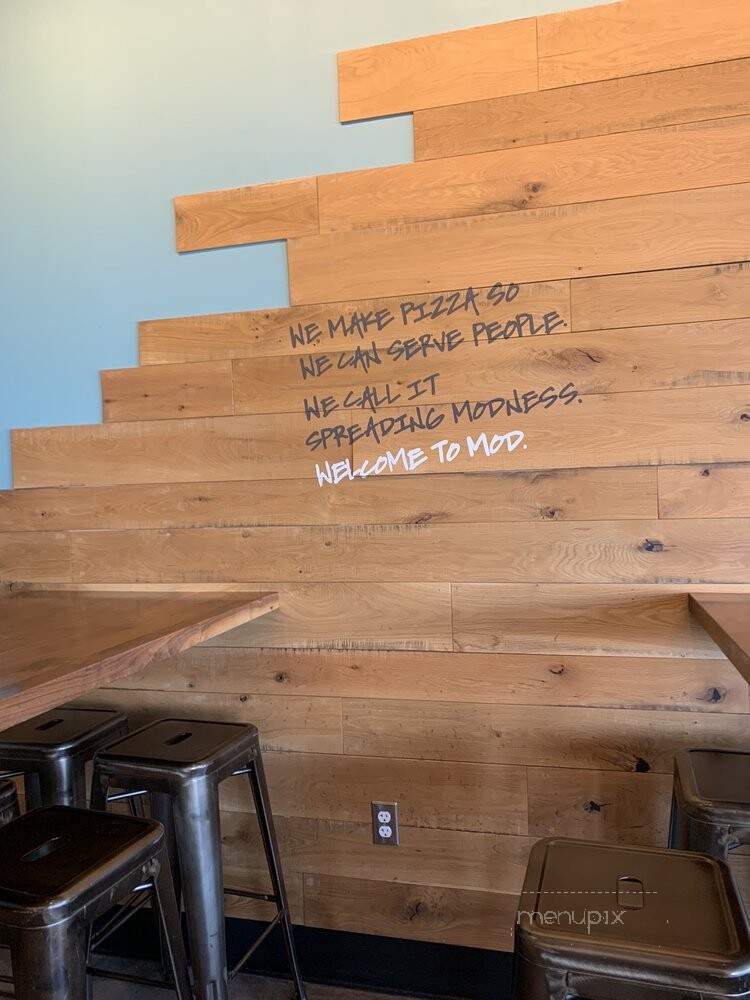 WE MAKE PIZZA SO
WE CAN SERVE PEOPLE.
WE CALL IT
SPREADING MODNESS.
WELCOME TO MOD.
menupix